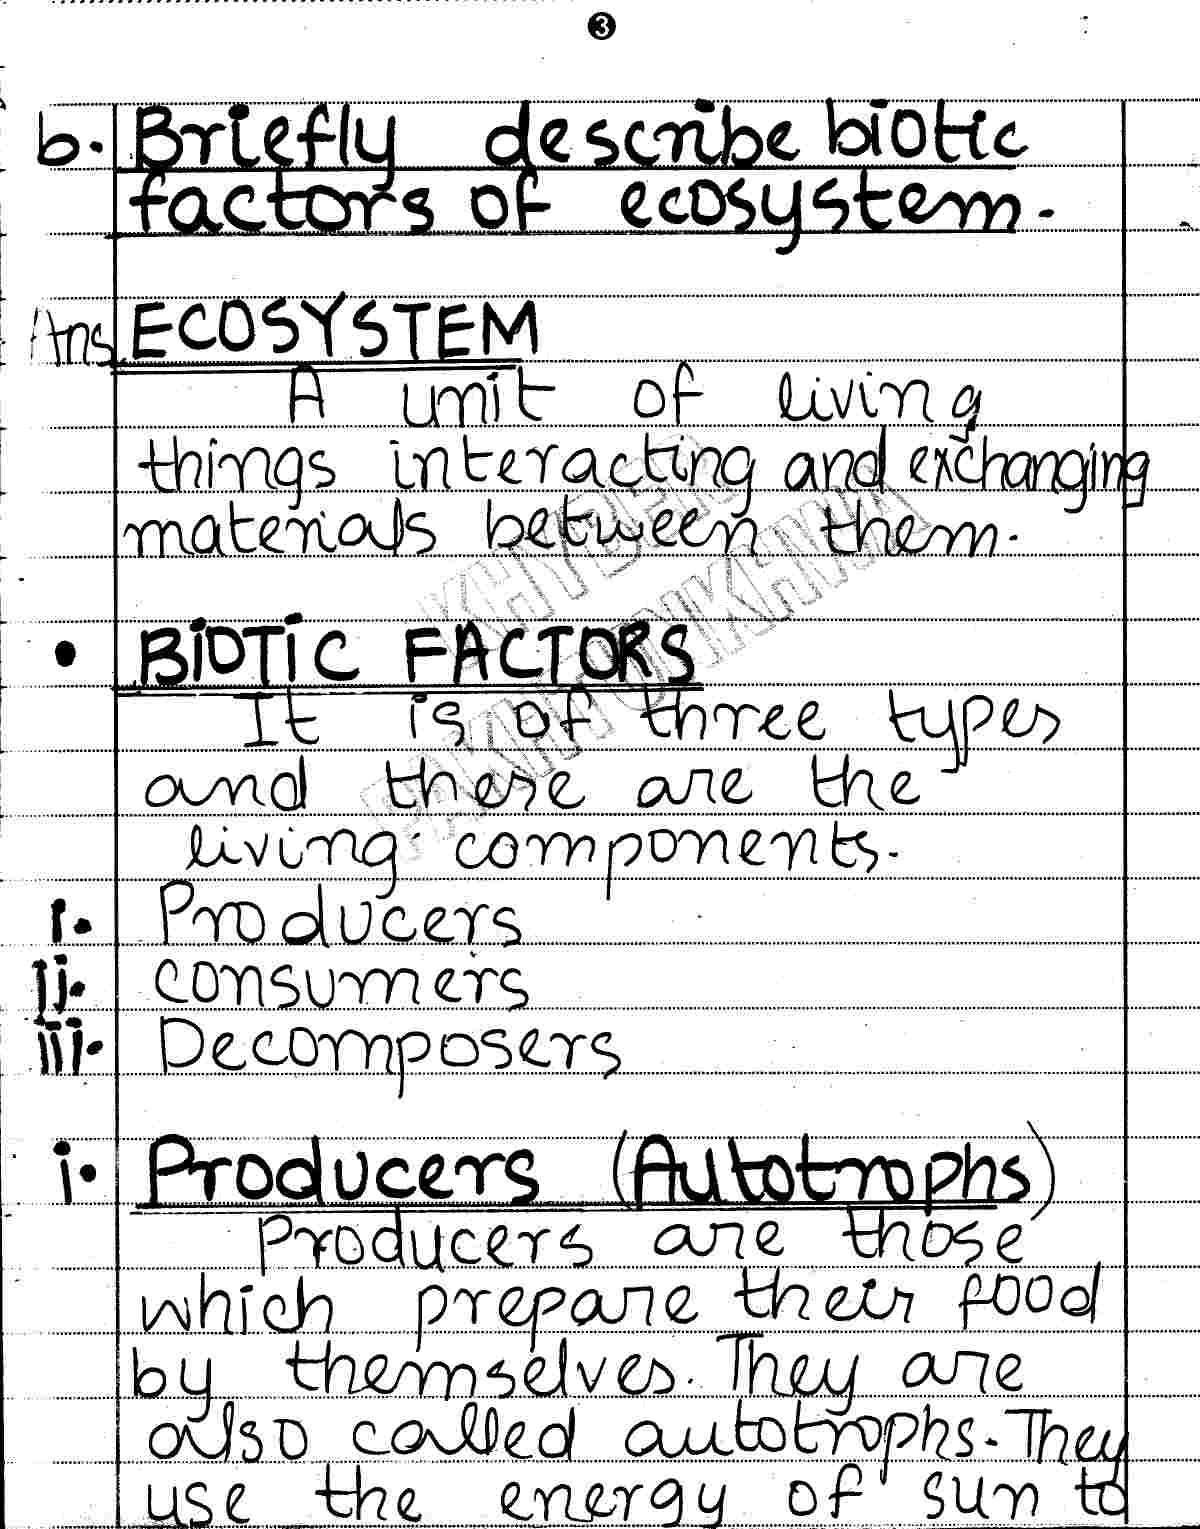 3
b. Briefly describe biotic
factors of ecosystem.
Ans. ECOSYSTEM
A unit of living
things interacting and exchanging
materials between them.
KHYBER
PAKHTUNKHWA
• BIOTIC FACTORS
It is of three types
and these are the
living components.
i. Producers
ii. consumers
iii. Decomposers
i. Producers (Autotrophs)
Producers are those
which prepare their food
by themselves. They are
also called autotrophs. They
use the energy of sun to